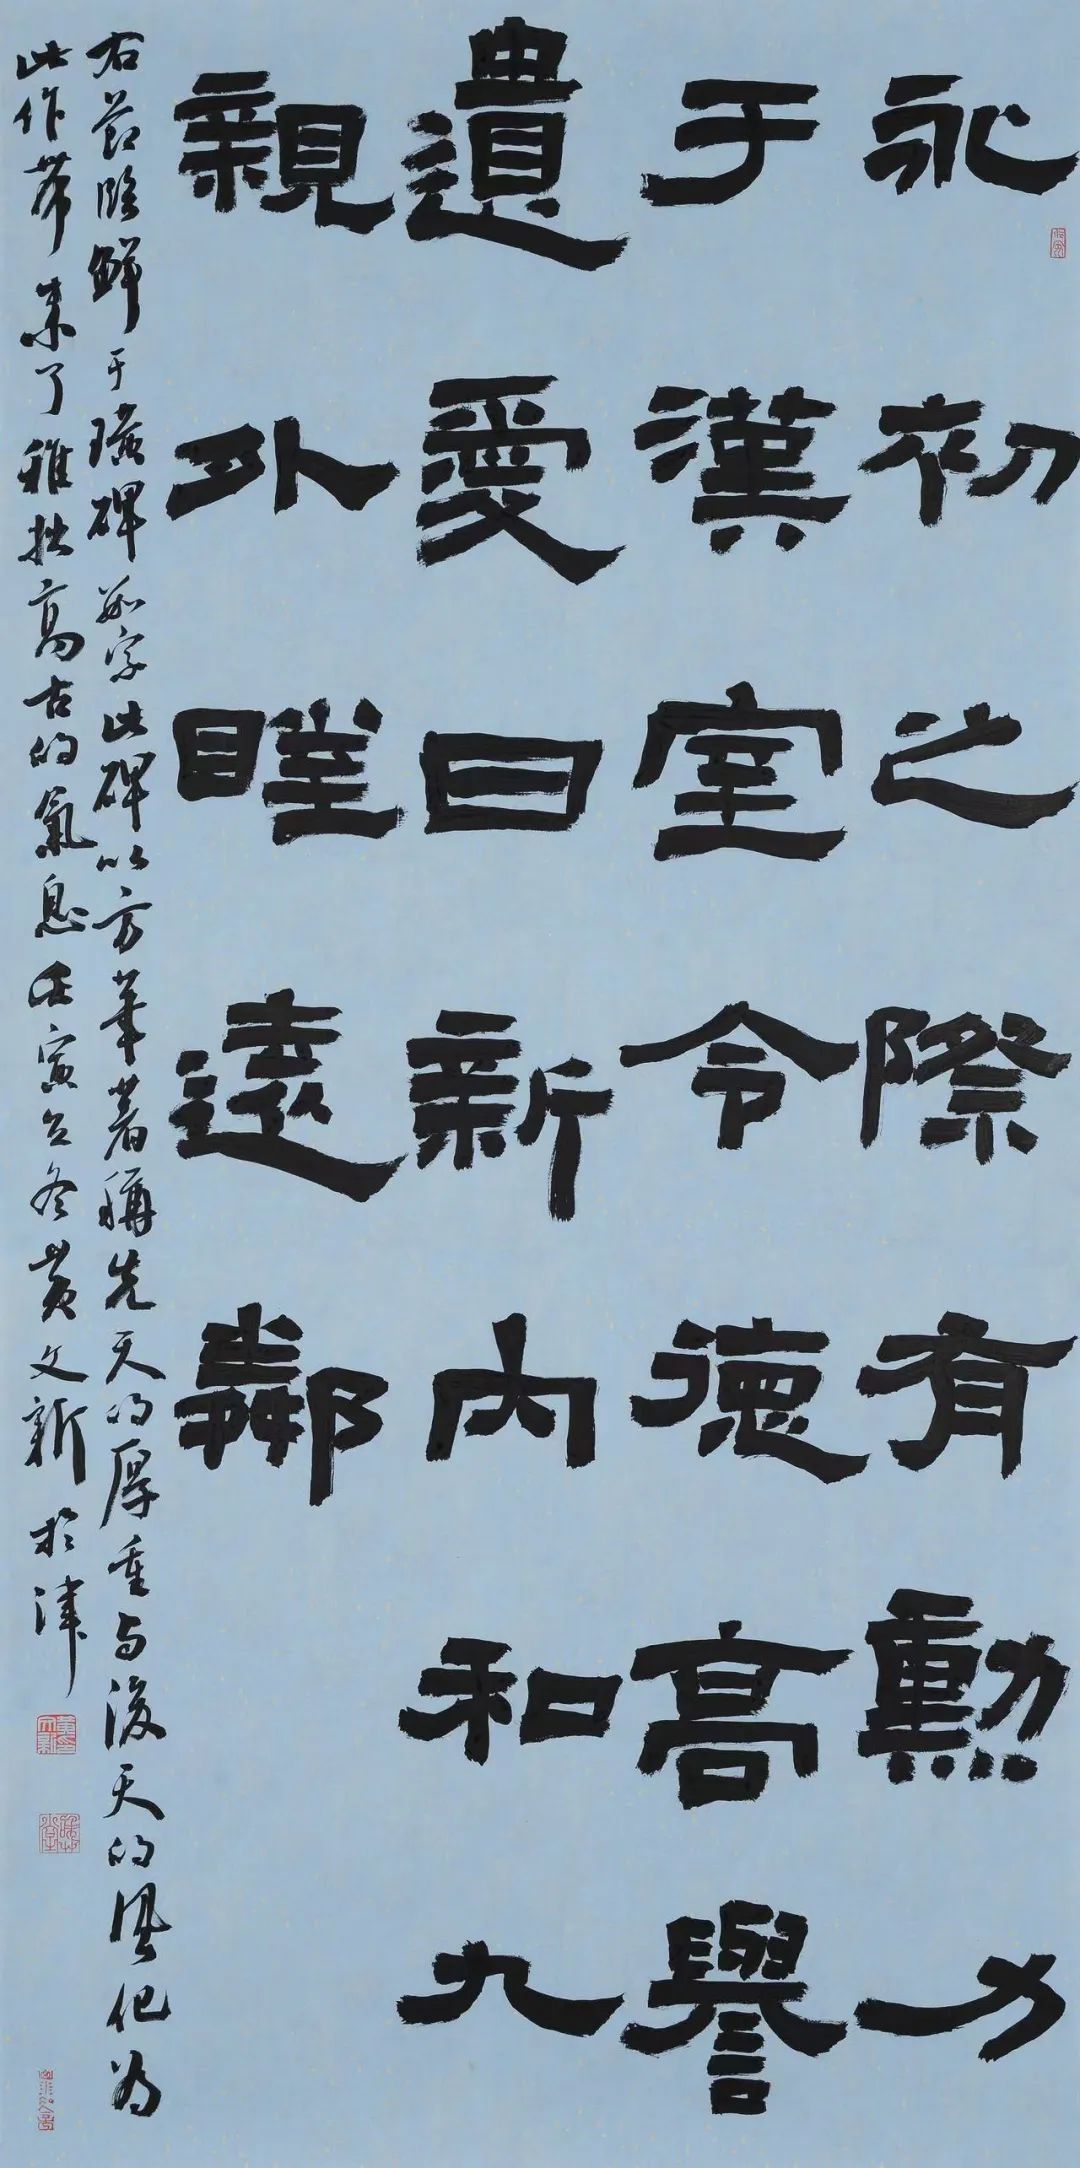 永初之際有勳力
于漢室令德高譽
遺愛日新內和九
親外睦遠鄰
右節臨鮮于璜碑數字此碑以方筆著稱先天的厚重与後天的風化为
此作帶來了雅拙高古的氣息壬寅立冬黃文新於津